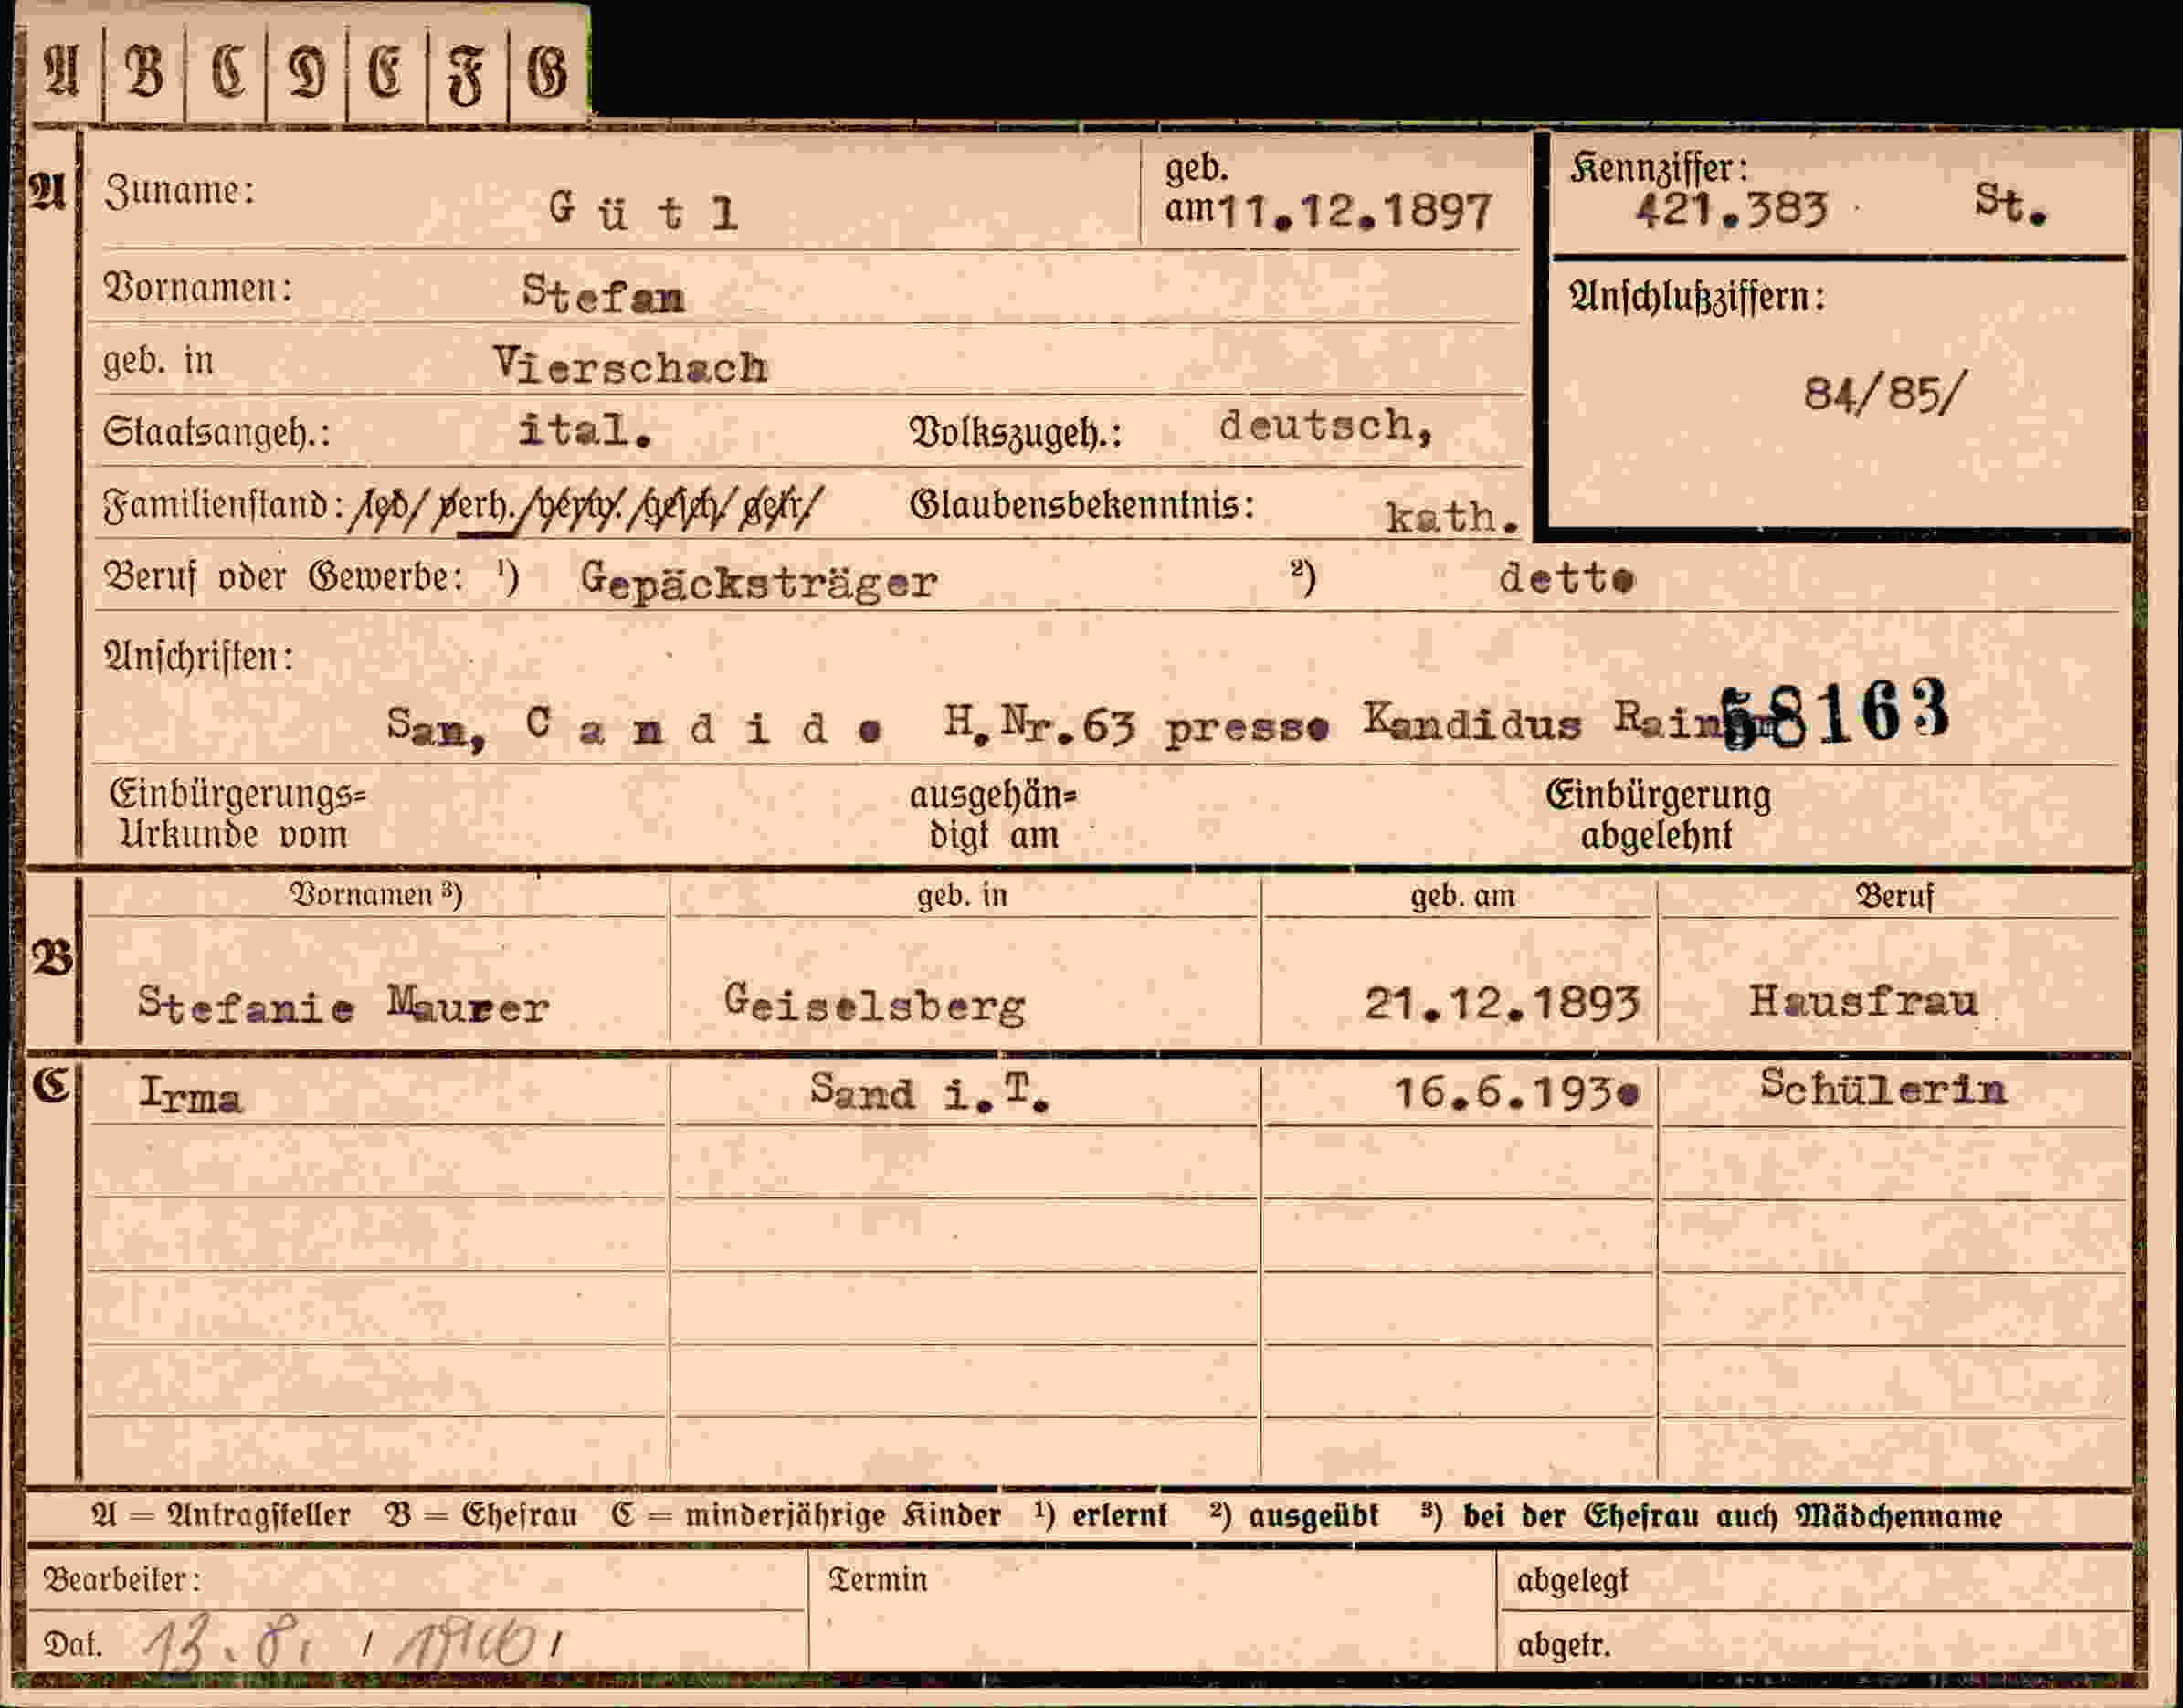 A B C D E F G
A Zuname: Gütl geb. am 11.12.1897 Kennziffer: 421.383 St.
Vornamen: Stefan Anschlußziffern:
geb. in Vierschach 84/85/
Staatsangeh.: ital. Volkszugeh.: deutsch,
Familienstand: led/ verh./ verw./ gesch/ getr/ Glaubensbekenntnis: kath.
Beruf oder Gewerbe: ¹) Gepäcksträger ²) detto
Anschriften:
San, Candido H.Nr.63 presso Kandidus 58163
Einbürgerungs= ausgehän= Einbürgerung
Urkunde vom digt am abgelehnt
Vornamen ³) geb. in geb. am Beruf
B Stefanie Maurer Geiselsberg 21.12.1893 Hausfrau
C Irma Sand i.T. 16.6.1930 Schülerin
A = Antragsteller B = Ehefrau C = minderjährige Kinder ¹) erlernt ²) ausgeübt ³) bei der Ehefrau auch Mädchenname
Bearbeiter: Termin abgelegt
Dat. 13.8. / 1940 / abgetr.